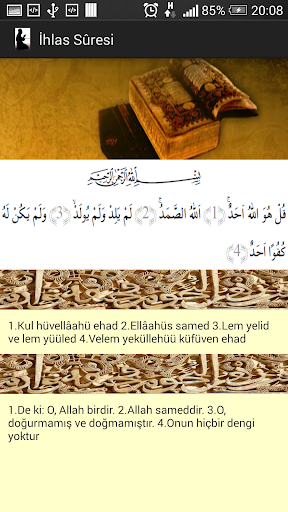 85% 20:08
İhlas Sûresi
بِسْمِ اللهِ الرَّحْمٰنِ الرَّحِيمِ
قُلْ هُوَ اللهُ اَحَدٌۚ ﴿1﴾ اَللهُ الصَّمَدُۚ ﴿2﴾ لَمْ يَلِدْ وَلَمْ يُولَدْۙ ﴿3﴾ وَلَمْ يَكُنْ لَهُ
كُفُوًا اَحَدٌ ﴿4﴾
1.Kul hüvellâahü ehad 2.Ellâahüs samed 3.Lem yelid
ve lem yüüled 4.Velem yeküllehüü küfüven ehad
1.De ki: O, Allah birdir. 2.Allah sameddir. 3.O,
doğurmamış ve doğmamıştır. 4.Onun hiçbir dengi
yoktur